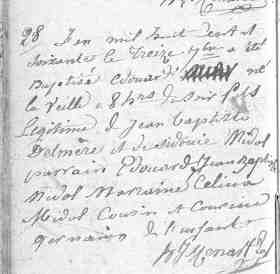 28 L'an mil huit cent et
Soixante le treize 7bre a été
Baptisé Edouard né
la veille a 8 hrs du soir fils
Légitime de Jean Baptiste
et de Sidonie Midol
parrain Edouard Jean Baptiste
Midol Marraine Celina
Midol Cousin et Cousine
germains de l'enfant